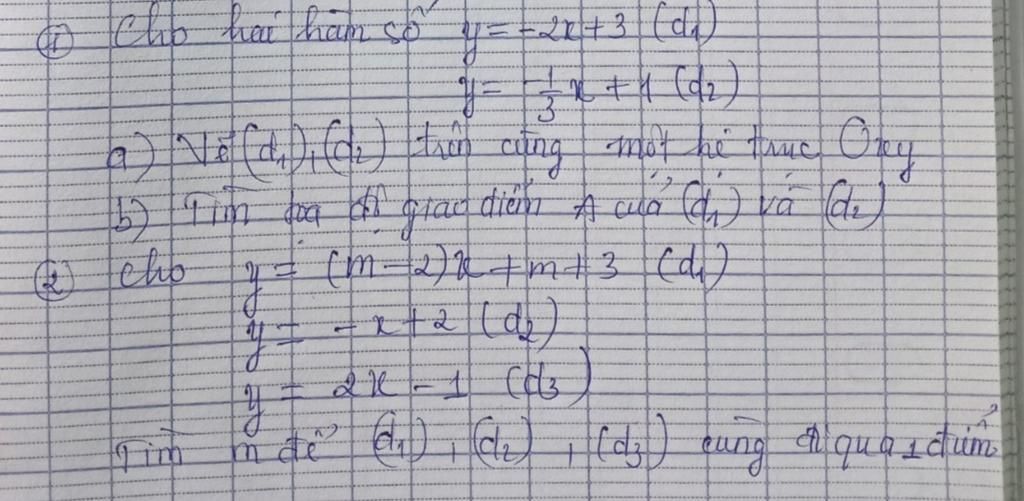 ① Cho hai hàm số y = -2x + 3 (d₁)
y = -1/3 x + 1 (d₂)
a) Vẽ (d₁), (d₂) trên cùng một hệ trục Oxy
b) Tìm tọa độ giao điểm A của (d₁) và (d₂)
② Cho y = (m - 2)x + m + 3 (d₁)
y = -x + 2 (d₂)
y = 2x - 1 (d₃)
Tìm m để (d₁), (d₂), (d₃) cùng đi qua 1 điểm